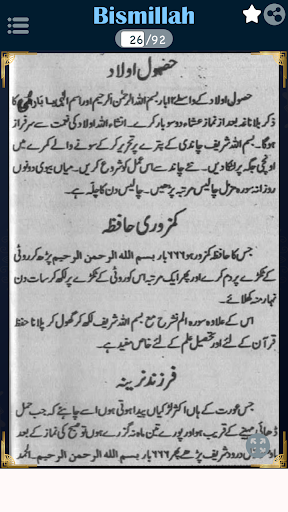 Bismillah
26/92
حصول اولاد
حصول اولاد کے واسطے ۱۲ بار بسم اللہ الرحمٰن الرحیم اور اسم الٰہی یا کا
ذکر بلا ناغہ بعد از نماز عشاء دو سو بار کرے۔ انشاء اللہ اولاد کی نعمت سے سرفراز
ہوگا۔ بسم اللہ شریف چاندی کے پترے پر تحریر کر کے سونے والے کمرے میں
اونچی جگہ پر لٹکا دیں۔ نئے چاند سے اس عمل کو شروع کریں۔ میاں بیوی دونوں
روزانہ سورہ مزمل چالیس مرتبہ پڑھیں۔ چالیس دن کا چلہ ہے۔
کمزوری حافظہ
جس کا حافظہ کمزور ہو ۶۶۶ بار بسم الله الرحمن الرحيم پڑھ کر روٹی
کے ٹکڑے پر دم کرے اور پھر ایک مرتبہ اس کو روٹی کے ٹکڑے پر لکھ کر سات دن
نہار منہ کھلائے۔
اس کے علاوہ سورہ الم نشرح مع بسم اللہ شریف لکھ کر گھول کر پلانا حفظ
قرآن کے لئے اور تحصیل علم کے لئے خاص مفید ہے۔
فرزند نرینہ
جس عورت کے ہاں اکثر لڑکیاں پیدا ہوتی ہوں اسے چاہئے کہ جب حمل
ڈھائی مہینے کے قریب ہو اور پورے تین ماہ نہ گزرے ہوں تو صبح کی نماز کے بعد
درود شریف پڑھے پھر ۶۶۶ بار بسم الله الرحمن الرحيم